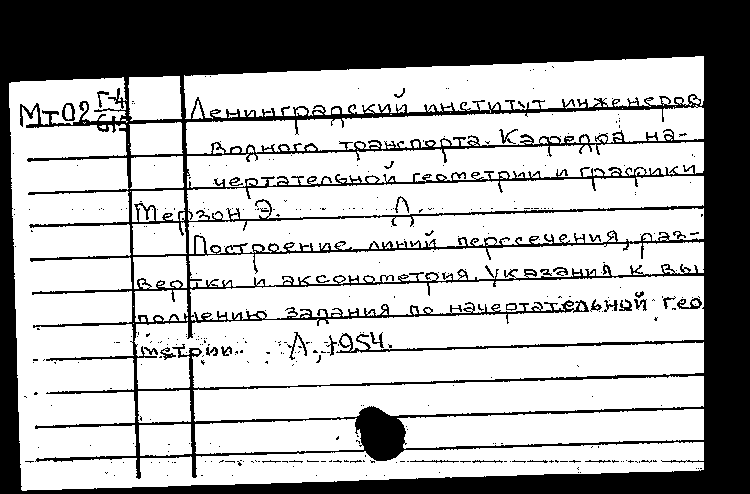 Мт02 Г-4 Ленинградский институт инженеров
водного транспорта. Кафедра на-
чертательной геометрии и графики
Мерзон, Э. Л.
Построение линий пересечения, раз-
вертки и аксонометрия. Указания к вы
полнению задания по начертательной гео
метрии. Л., 1954.